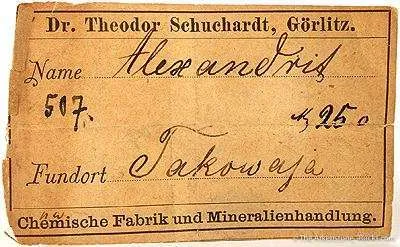 Dr. Theodor Schuchardt, Görlitz.
Name Alexandrit
507. 25
Fundort Takowaja
Chemische Fabrik und Mineralienhandlung.